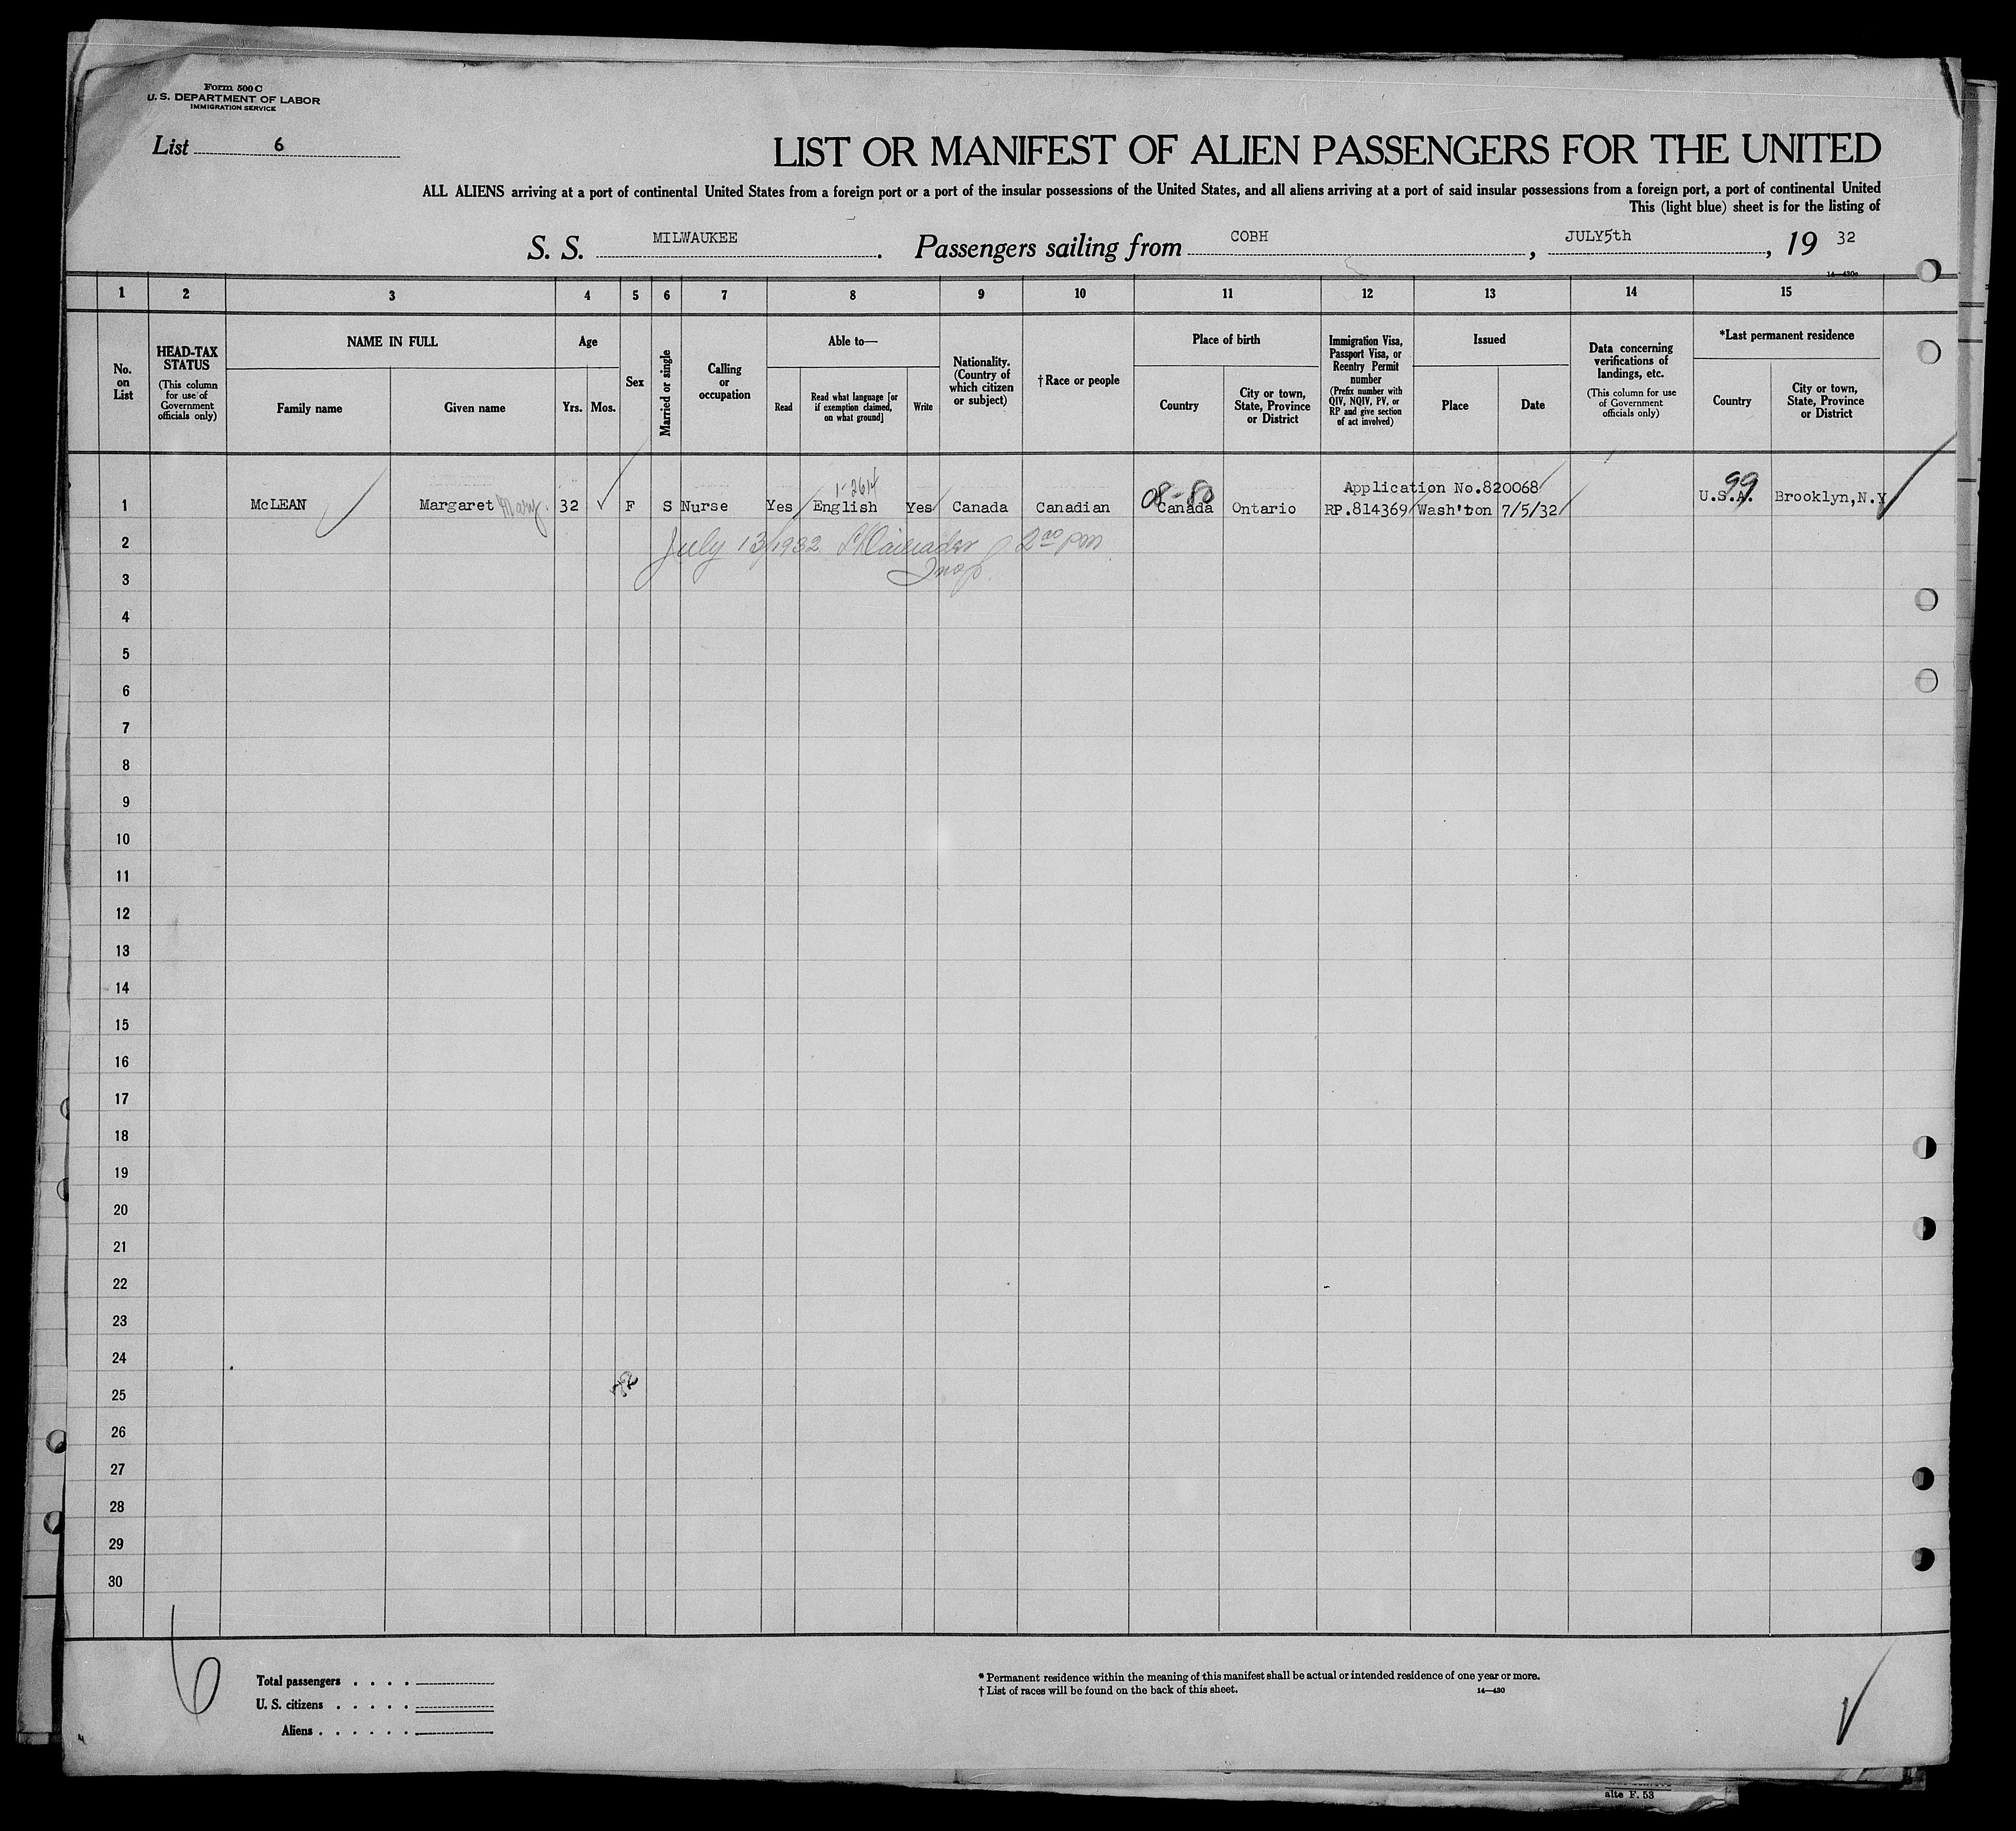 Form 500 C
U. S. DEPARTMENT OF LABOR
IMMIGRATION SERVICE
List 6
LIST OR MANIFEST OF ALIEN PASSENGERS FOR THE UNITED
ALL ALIENS arriving at a port of continental United States from a foreign port or a port of the insular possessions of the United States, and all aliens arriving at a port of said insular possessions from a foreign port, a port of continental United
This (light blue) sheet is for the listing of
S. S. MILWAUKEE. Passengers sailing from COBH, JULY5th, 19 32
14—430a
1 2 3 4 5 6 7 8 9 10 11 12 13 14 15
No.
on
List
HEAD-TAX
STATUS
(This column
for use of
Government
officials only)
NAME IN FULL
Family name
Given name
Age
Yrs.
Mos.
Sex
Married or single
Calling
or
occupation
Able to—
Read
Read what language [or
if exemption claimed,
on what ground]
Write
Nationality.
(Country of
which citizen
or subject)
† Race or people
Place of birth
Country
City or town,
State, Province
or District
Immigration Visa,
Passport Visa, or
Reentry Permit
number
(Prefix number with
QIV, NQIV, PV, or
RP and give section
of act involved)
Issued
Place
Date
Data concerning
verifications of
landings, etc.
(This column for use
of Government
officials only)
*Last permanent residence
Country
City or town,
State, Province
or District
1-2614
08-80
Application No.820068
99
1 McLEAN Margaret Mary. 32 F S Nurse Yes English Yes Canada Canadian Canada Ontario RP.814369 Wash'ton 7/5/32 U.S.A. Brooklyn,N.Y
2 July 13/1932 2 00 pm
3 Insp.
4
5
6
7
8
9
10
11
12
13
14
15
16
17
18
19
20
21
22
23
24
25
26
27
28
29
30
6
Total passengers . . . .
U. S. citizens . . . . .
Aliens . . . . . .
* Permanent residence within the meaning of this manifest shall be actual or intended residence of one year or more.
† List of races will be found on the back of this sheet.
14—430
alte F. 53